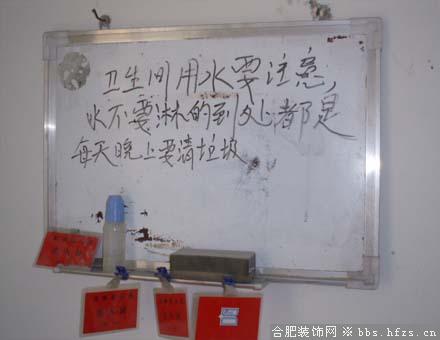 卫生间用水要注意,
水不要淋的到处都是
每天晚上要清垃圾
合肥装饰网※bbs.hfzs.cn